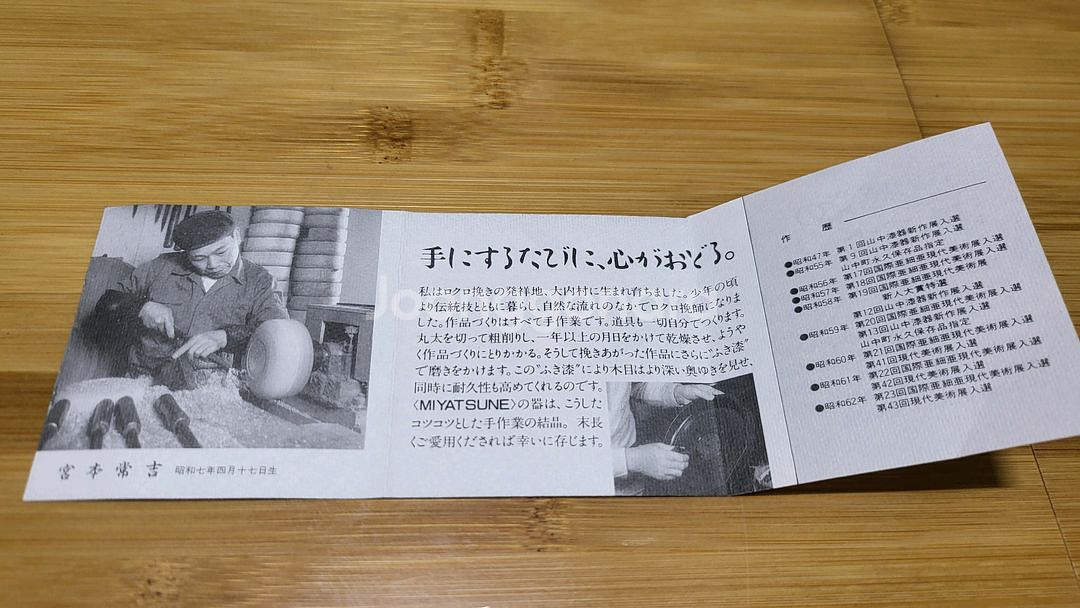 宮本常吉 昭和七年四月十七日生
手にするたびに、心がおどる。
私はロクロ挽きの発祥地、大内村に生まれ育ちました。少年の頃
より伝統技とともに暮らし、自然な流れのなかでロクロ挽師になりま
した。作品づくりはすべて手作業です。道具も一切自分でつくります。
丸太を切って粗削りし、一年以上の月日をかけて乾燥させ、ようや
く作品づくりにとりかかる。そうして挽きあがった作品にさらに“ふき漆”
で磨きをかけます。この“ふき漆”により木目はより深い奥ゆきを見せ、
同時に耐久性も高めてくれるのです。
〈MIYATSUNE〉の器は、こうした
コツコツとした手作業の結晶。末長
くご愛用くだされば幸いに存じます。
作歴
●昭和47年 第1回山中漆器新作展入選
●昭和55年 第9回山中漆器新作展入選
山中町永久保存品指定
●昭和56年 第17回国際亜細亜現代美術展入選
●昭和57年 第18回国際亜細亜現代美術展入選
●昭和58年 第19回国際亜細亜現代美術展
新人大賞特選
第12回山中漆器新作展入選
第20回国際亜細亜現代美術展入選
●昭和59年 第13回山中漆器新作展入選
山中町永久保存品指定
第21回国際亜細亜現代美術展入選
●昭和60年 第41回現代美術展入選
第22回国際亜細亜現代美術展入選
●昭和61年 第42回現代美術展入選
第23回国際亜細亜現代美術展入選
●昭和62年 第43回現代美術展入選